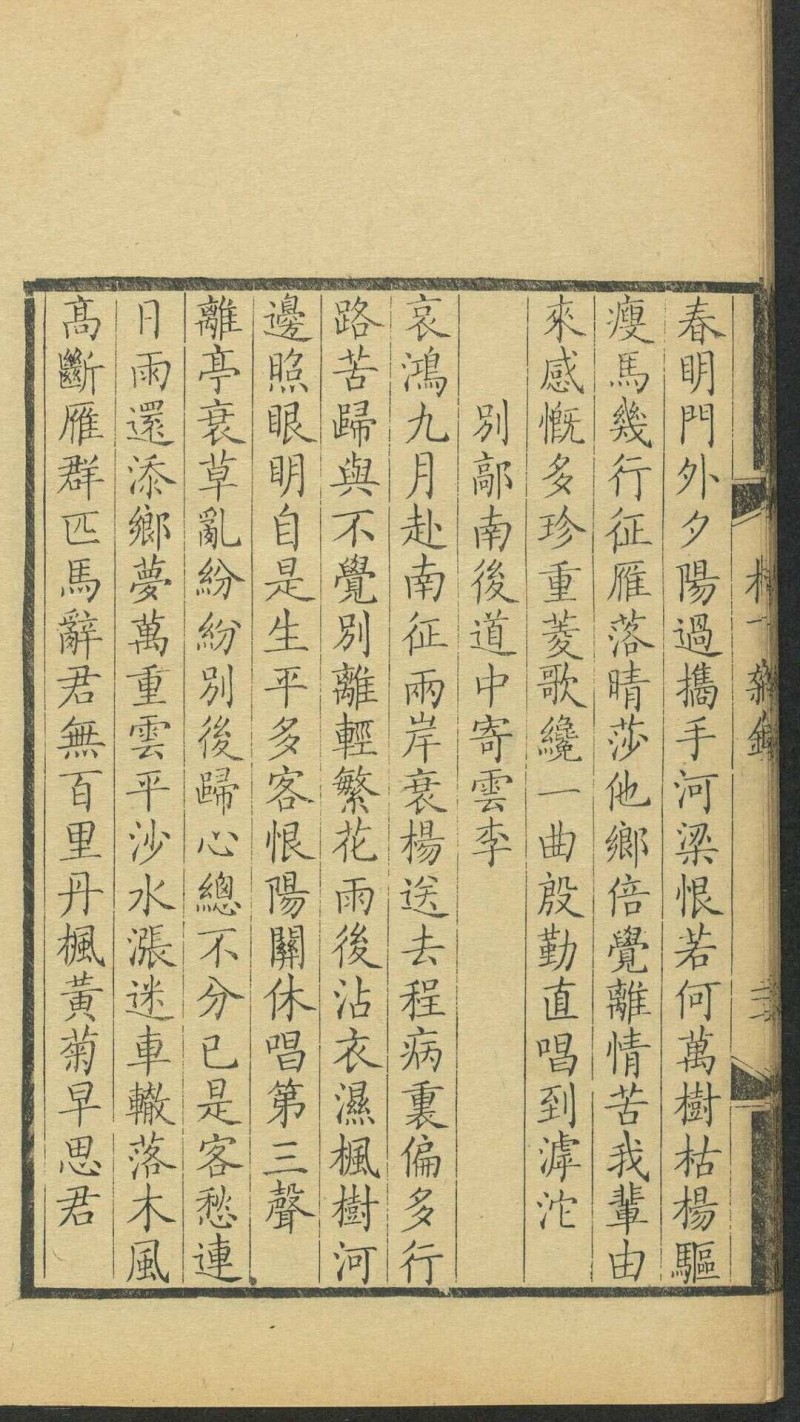 春明門外夕陽過攜手河梁恨若何萬樹枯楊驅
瘦馬幾行征雁落晴莎他鄉倍覺離情苦我輩由
來感慨多珍重菱歌纔一曲殷勤直唱到滹沱
別鄗南後道中寄雲李
哀鴻九月赴南征兩岸衰楊送去程病裏偏多行
路苦歸與不覺別離輕繁花雨後沾衣濕楓樹河
邊照眼明自是生平多客恨陽關休唱第三聲
離亭衰草亂紛紛別後歸心總不分已是客愁連
日雨還添鄉夢萬重雲平沙水漲迷車轍落木風
高斷雁群匹馬辭君無百里丹楓黃菊早思君